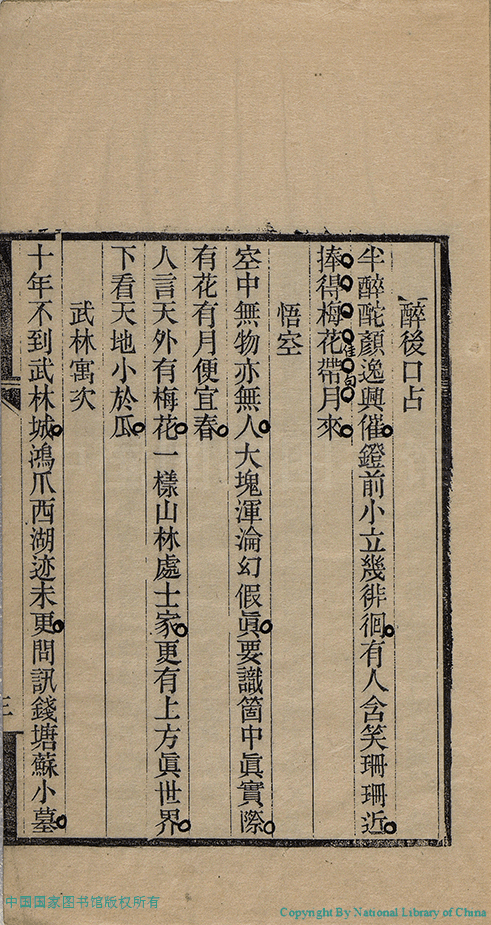 醉後口占
半醉酡顏逸興催鐙前小立幾徘徊有人含笑珊珊近
捧得梅花帶月來
佳句
悟空
空中無物亦無人大塊渾淪幻假眞要識箇中眞實際
有花有月便宜春
人言天外有梅花一樣山林處士家更有上方眞世界
下看天地小於瓜
武林寓次
十年不到武林城鴻爪西湖迹未更問訊錢塘蘇小墓
三
中国国家图书馆版权所有
Copyright By National Library of China